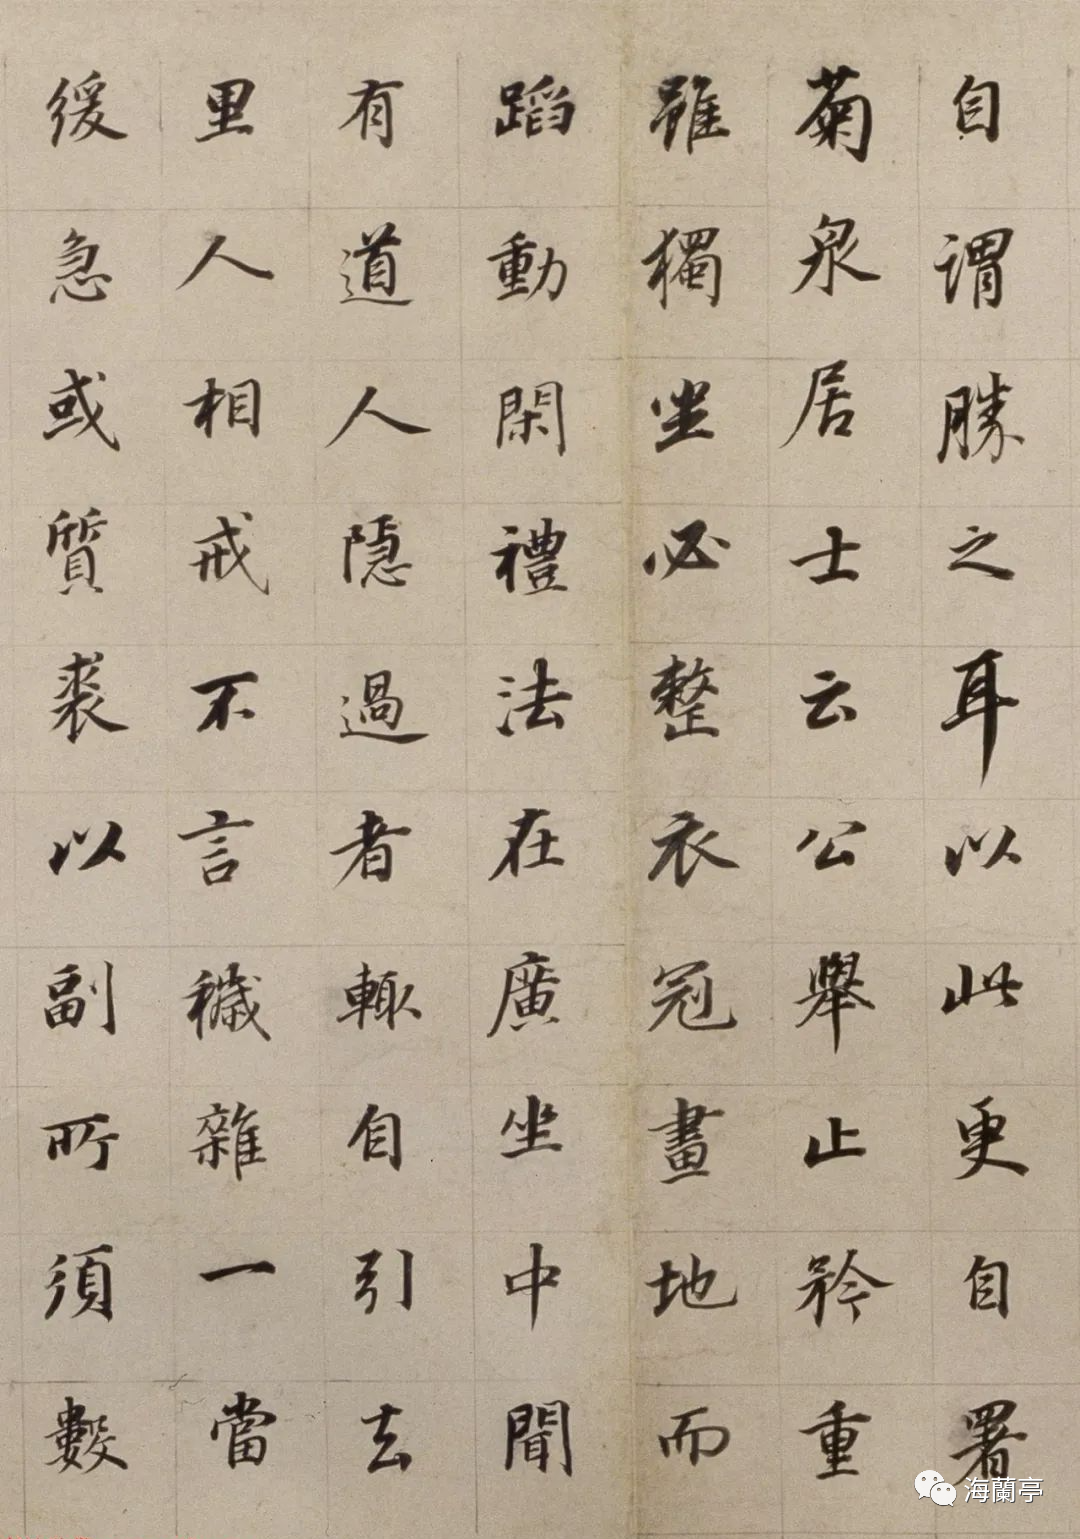 自謂勝之耳以此更自署
菊泉居士云公舉止矜重
雖獨坐必整衣冠畫地而
蹈動閑禮法在廣坐中聞
有道人隱過者輒自引去
里人相戒不言穢雜一當
緩急或質裘以副所須數
海蘭亭